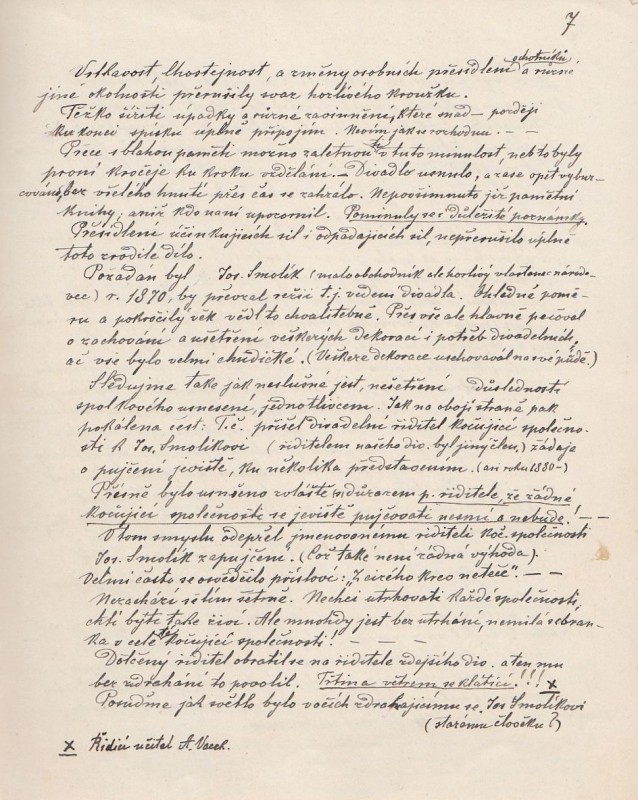 7
Vrtkavost, lhostejnost, a změny osobních přesídlení ochotníků a různé
jiné okolnosti přerušily svaz horlivého kroužku.
Těžko šířiti úpadky a různé zavinněné, které snad — později
ku konci spisku úplně připojím. Nevím jak se rozhodnu. — —
Přece s blahou pamětí možno zaletnouti v tuto minulost, neb to byly
první kročeje ku kroku vzdělání. — Divadlo usnulo, a zase opět vybur-
cováno, bez vřelého hnutí přes čas se zahrálo. Nepovšimnuto již pamětní
knihy; aniž kdo naní upozornil. Pominuly se i důležité poznamky.
Přesídlení účinkujících sil i odpadajících sil, nepřerušilo úplně
toto zrodilé dílo.
Požádán byl Jos. Smolík (maloobchodník ale horlivý vlastenec národo-
vec) r. 1870, by převzal režii t. j. vedení divadla. Ohledně pomě-
ru a pokročilý věk vedl to chvalitebně. Přes vše ale hlavně pečoval
o zachování a ušetření veškerých dekorací i potřeb divadelních,
ač vše bylo velmi chudičké. (Veškeré dekorace uschovával na své půdě.)
Sledujme také jak neslušné jest, nešetření důslednosti
spolkového usnesení, jednotlivcem. Jak na obojí straně pak
pokálena čest: T. č. přišel divadelní řiditel kočující společno-
sti k Jos. Smolíkovi (řiditelem našeho div. byl jiný člen,) žádaje
o pujčení jeviště, ku několika představením. (asi roku 1880 —)
Přísně bylo usnešeno zvláště s důrazem p. řiditele, že žádné
kočující společnosti se jeviště pujčovati nesmí a nebude! — —
V tom smyslu odepřel jmenovanému řiditeli koč. společnosti
Jos. Smolík zapujčení. (Což také není žádná výhoda).
Velmi často se osvědčilo přísloví: „Z cizého krev neteče". — —
Nezachází se s tím šetrně. Nechci utrhovati každé společnosti,
chtí býti také živi. Ale mnohdy jest bez utrhání, nemilá sebran-
ka v celé té kočující společnosti! — — —
Dotčený řiditel obrátil se na řiditele zdejšího div. a ten mu
bez zdráhání to povolil. Třtina větrem se klátící!!! x
Posuďme jak světlo bylo v očích zdráhajícímu se Jos Smolíkovi
(starému člověku?)
x Řídící učitel A. Vacek.